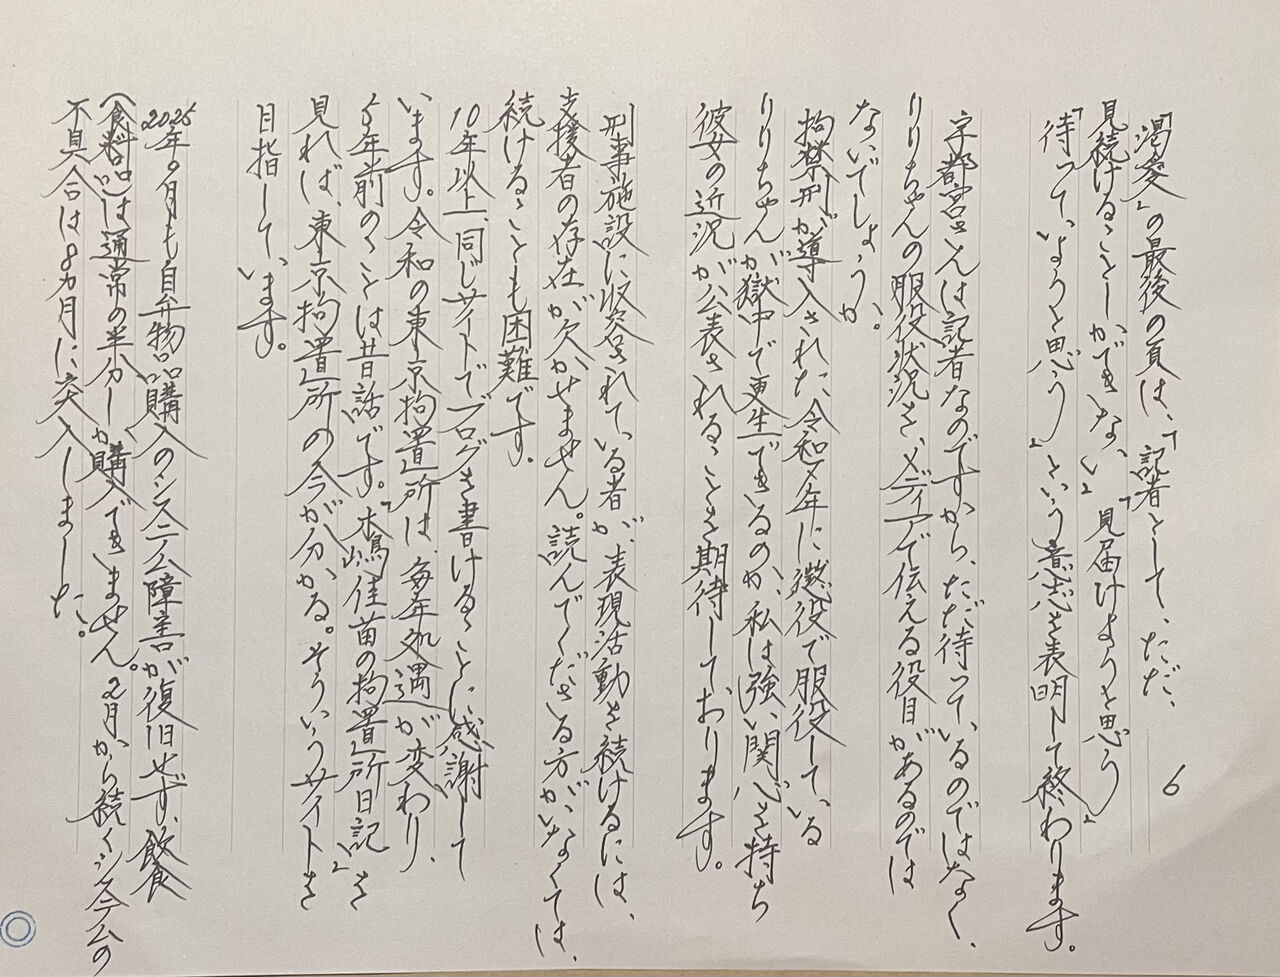 6
『渇愛』の最後の頁は、「記者として、ただ、
見続けることしかできない」「見届けようと思う」
「待っていようと思う」という意志を表明して終わります。
宇都宮さんは記者なのですから、ただ待っているのではなく、
りりちゃんの服役状況を、メディアで伝える役目があるのでは
ないでしょうか。
拘禁刑が導入された令和7年に懲役で服役している
りりちゃんが獄中で更生できるのか、私は強い関心を持ち
彼女の近況が公表されることを期待しております。
刑事施設に収容されている者が、表現活動を続けるには、
支援者の存在が欠かせません。読んでくださる方がいなくては、
続けることも困難です。
10年以上、同じサイトでブログを書けることに感謝して
います。令和の東京拘置所は、毎年処遇が変わり、
5年前のことは昔話です。『木嶋佳苗の拘置所日記』を
見れば、東京拘置所の今が分かる。そういうサイトを
目指しています。
2025年9月も自弁物品購入のシステム障害が復旧せず、飲食
（食料品）は通常の半分しか購入できません。2月から続くシステムの
不具合は8ヵ月に突入しました。